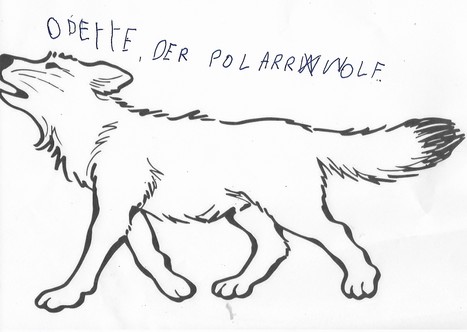 ODETTE, DER POLARRWOLF.